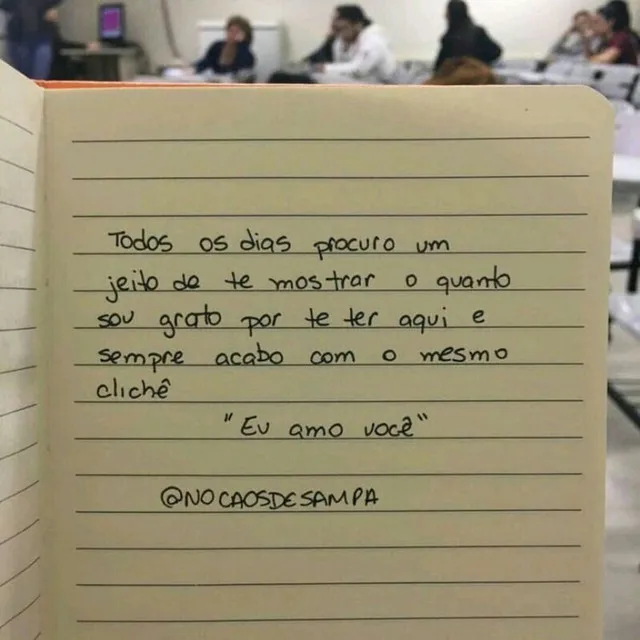 Todos os dias procuro um
jeito de te mostrar o quanto
sou grato por te ter aqui e
sempre acabo com o mesmo
clichê
"Eu amo você"
@NOCAOSDESAMPA